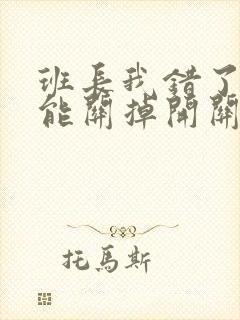 班长我错了
能關掉開關
托馬斯